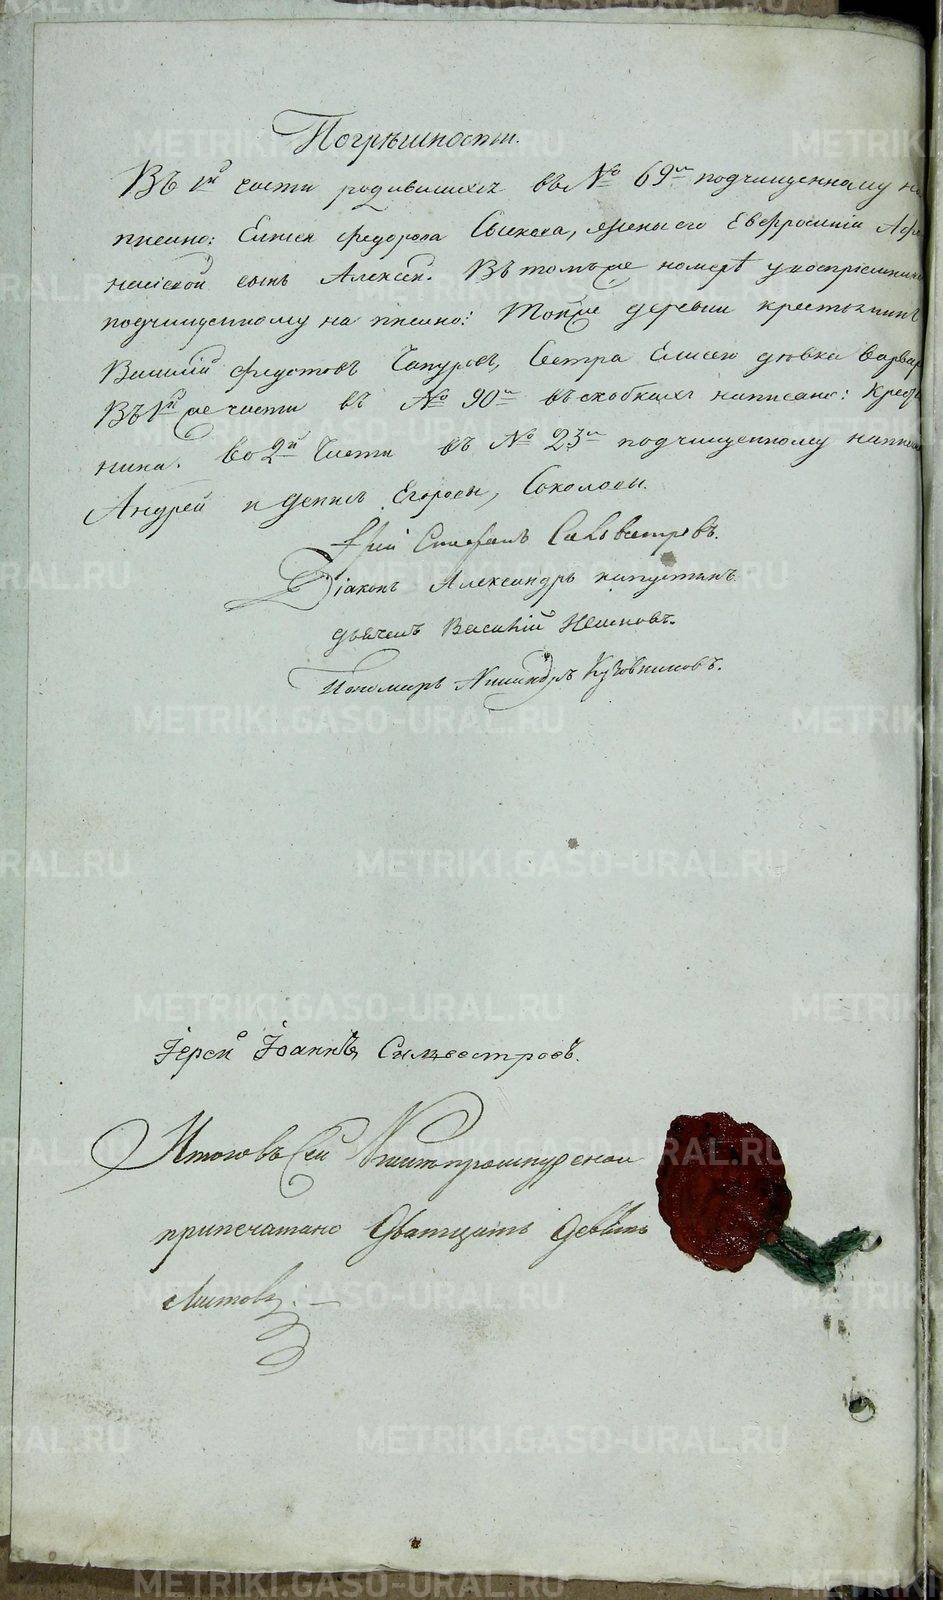 Погрѣшности.
Въ 1й части родившихся въ № 69м подчищенному на
писано: Елисея Федорова Сысоева, жены его Евфросиніи Афа
насіевой сынъ Алексей. Въ томъ же номерѣ у воспріемника
подчищенному написано: Тойже деревни крестьянинъ
Василий Федотовъ Чапуровъ, Сестра Елисею девка Варвара
Въ 1й же части въ № 90м въ скобкахъ написано: Крестья
нина. Во 2й Части въ № 23м подчищенному написано
Андрей и Денисъ Егоровы, Соколовы.
Іерей Стефанъ Сильвестровъ.
Діаконъ Александръ Капустинъ
дьячекъ Василій
Пономарь Никандръ Кузовниковъ.
Іерей Іоаннъ Сильвестровъ.
Итого въ Сей Книги прошнурской
припечатано Дватцать девѣть
листовъ.
METRIKI.GASO-URAL.RU